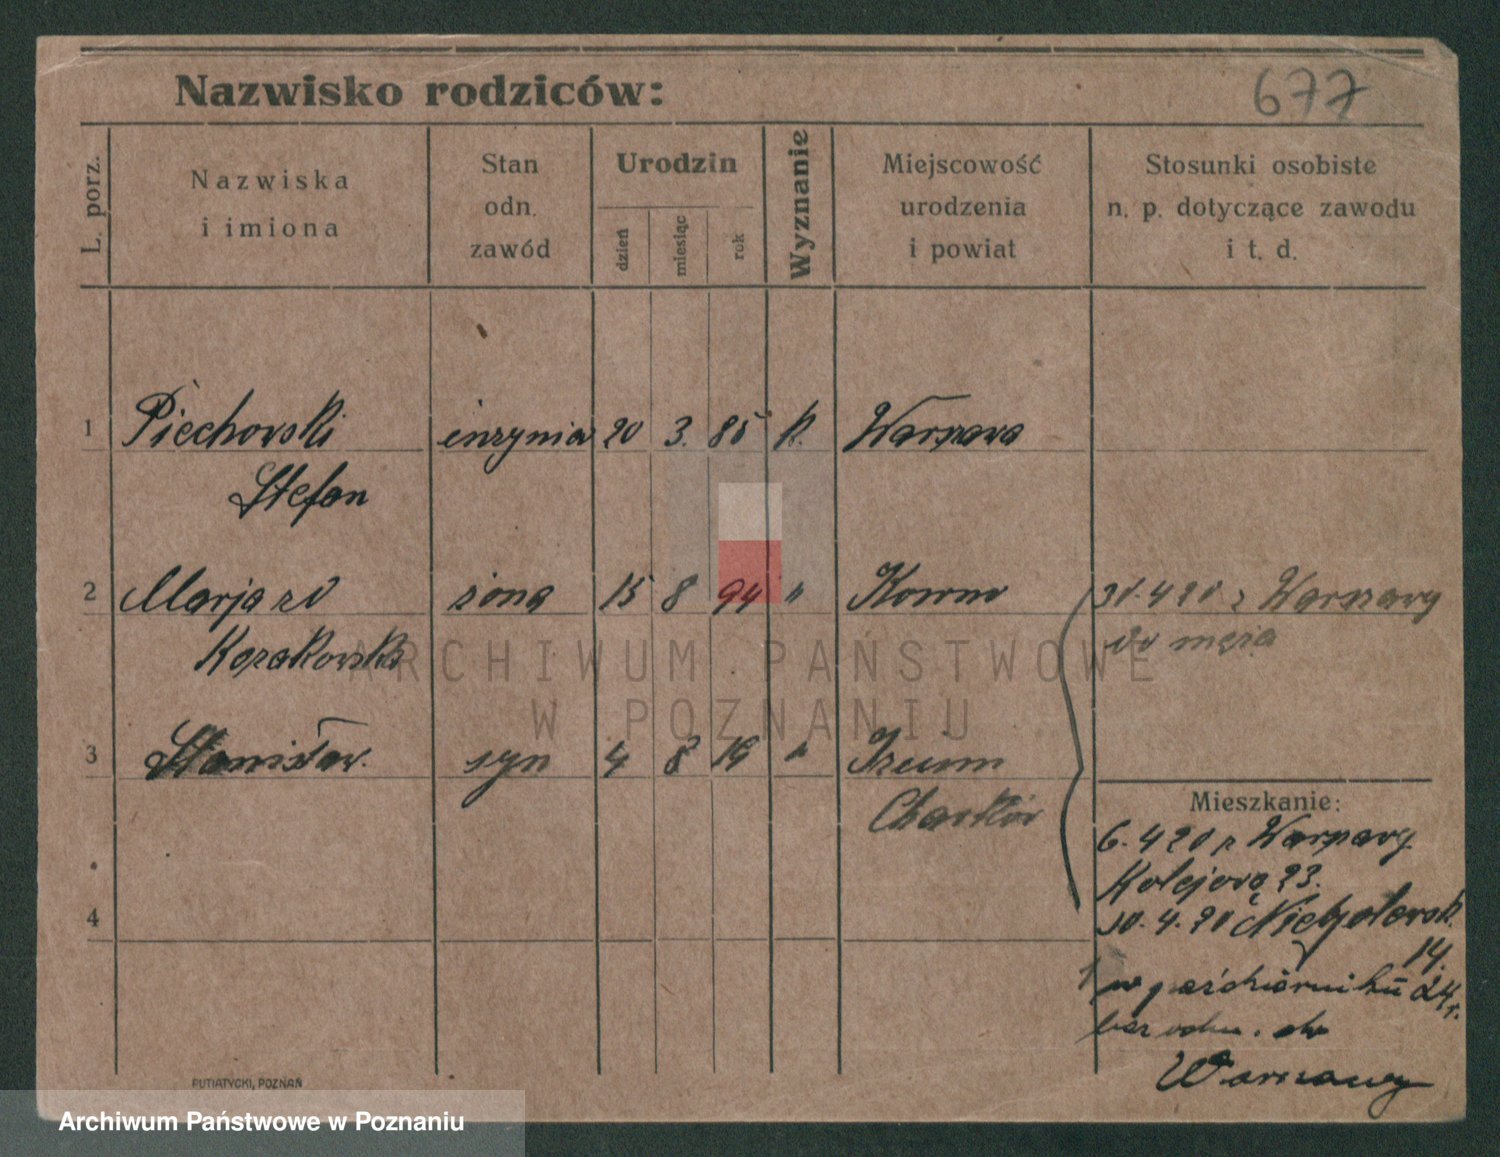 Nazwisko rodziców:
677
L. porz.
Nazwiska
i imiona
Stan
odn.
zawód
Urodzin
dzień
miesiąc
rok
Wyznanie
Miejscowość
urodzenia
i powiat
Stosunki osobiste
n. p. dotyczące zawodu
i t. d.
1 Piechovski inzynier 20 3. 85 k. Warszawa
Stefan
2 Marja zd żona 15 8 94 " Kowno 30.4 20 z Warszawy
Kozakovska do męża
3 Stanisław. syn 4 8 19 " Izium
Charków
Mieszkanie:
6. 4 20 z Warszawy
Kolejova 23.
4
30. 4. 20
14.
w październiku 24 r.
bez do
Warszawy
PUTIATYCKI, POZNAŃ
ARCHIWUM PAŃSTWOWE
W POZNANIU
Archiwum Państwowe w Poznaniu